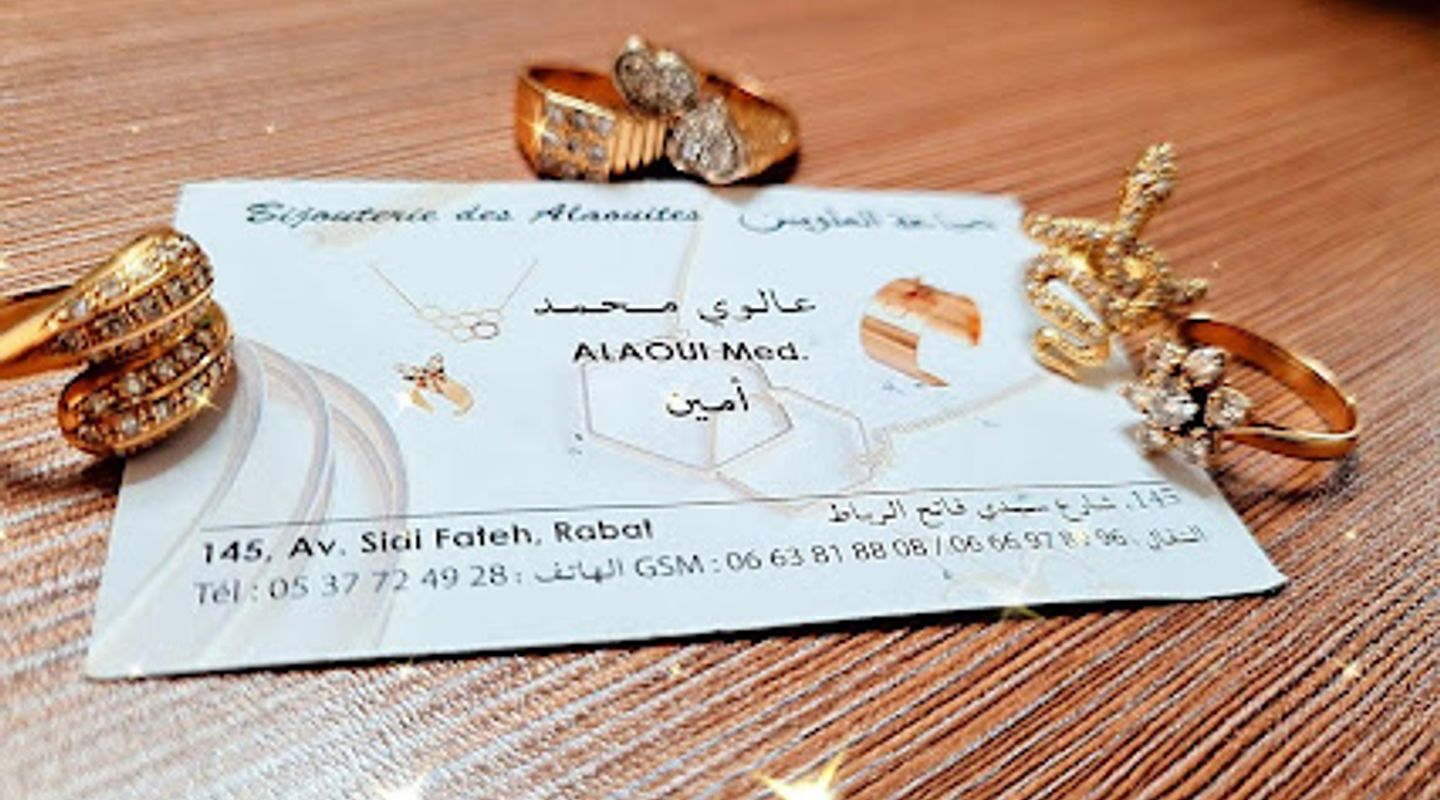 Bijouterie des Alaouites صياغة العلويين
عالوي محمد
ALAOUI Med.
أمين
145, شارع سيدي فاتح الرباط
145, Av. Sidi Fateh, Rabat
Tél : 05 37 72 49 28 : الهاتف GSM : 06 63 81 88 08 / 06 66 97 96 : النقال